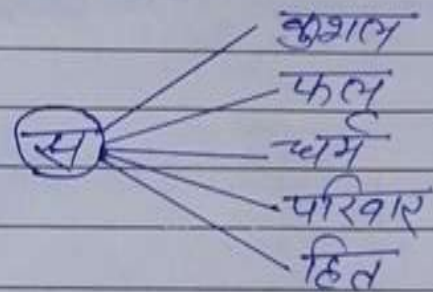 स
कुशल
फल
परिवार
हित